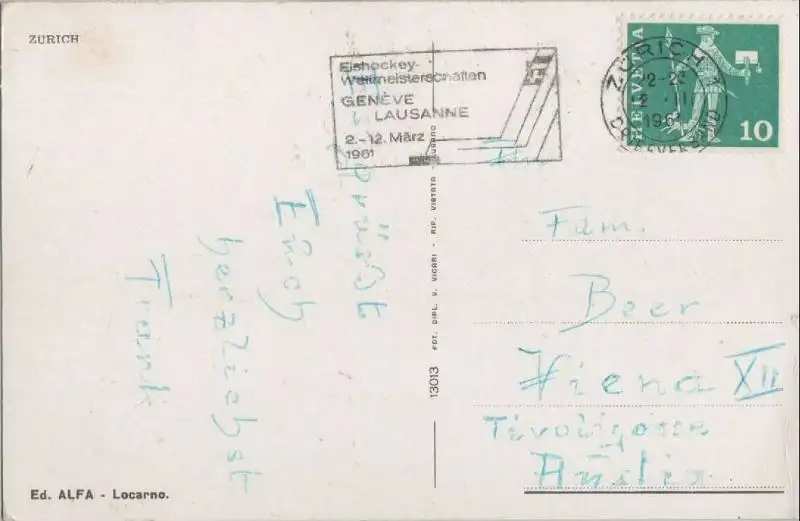 ZÜRICH
Eishockey-
Weltmeisterschaften
GENÈVE
LAUSANNE
2.-12. März
1961
ZÜRICH
1961
HELVETIA
10
grüsst
Euch
herzlichst
Frank
Fam.
Beer
Wiena XII
Tivoligasse
Austria
13013
FOT. DIPL. V. VICARI - RIP. VIETATA
Ed. ALFA - Locarno.